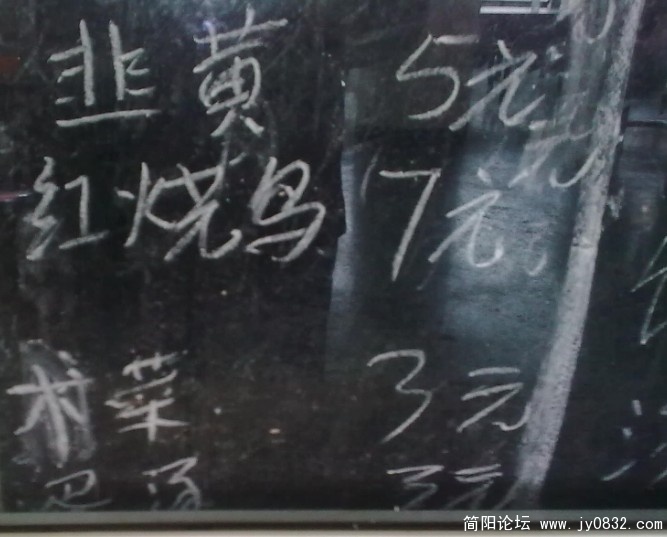 韭黄 5元
红烧鸟 7元
术菜 3元
3元
简阳论坛 www.jy0832.com